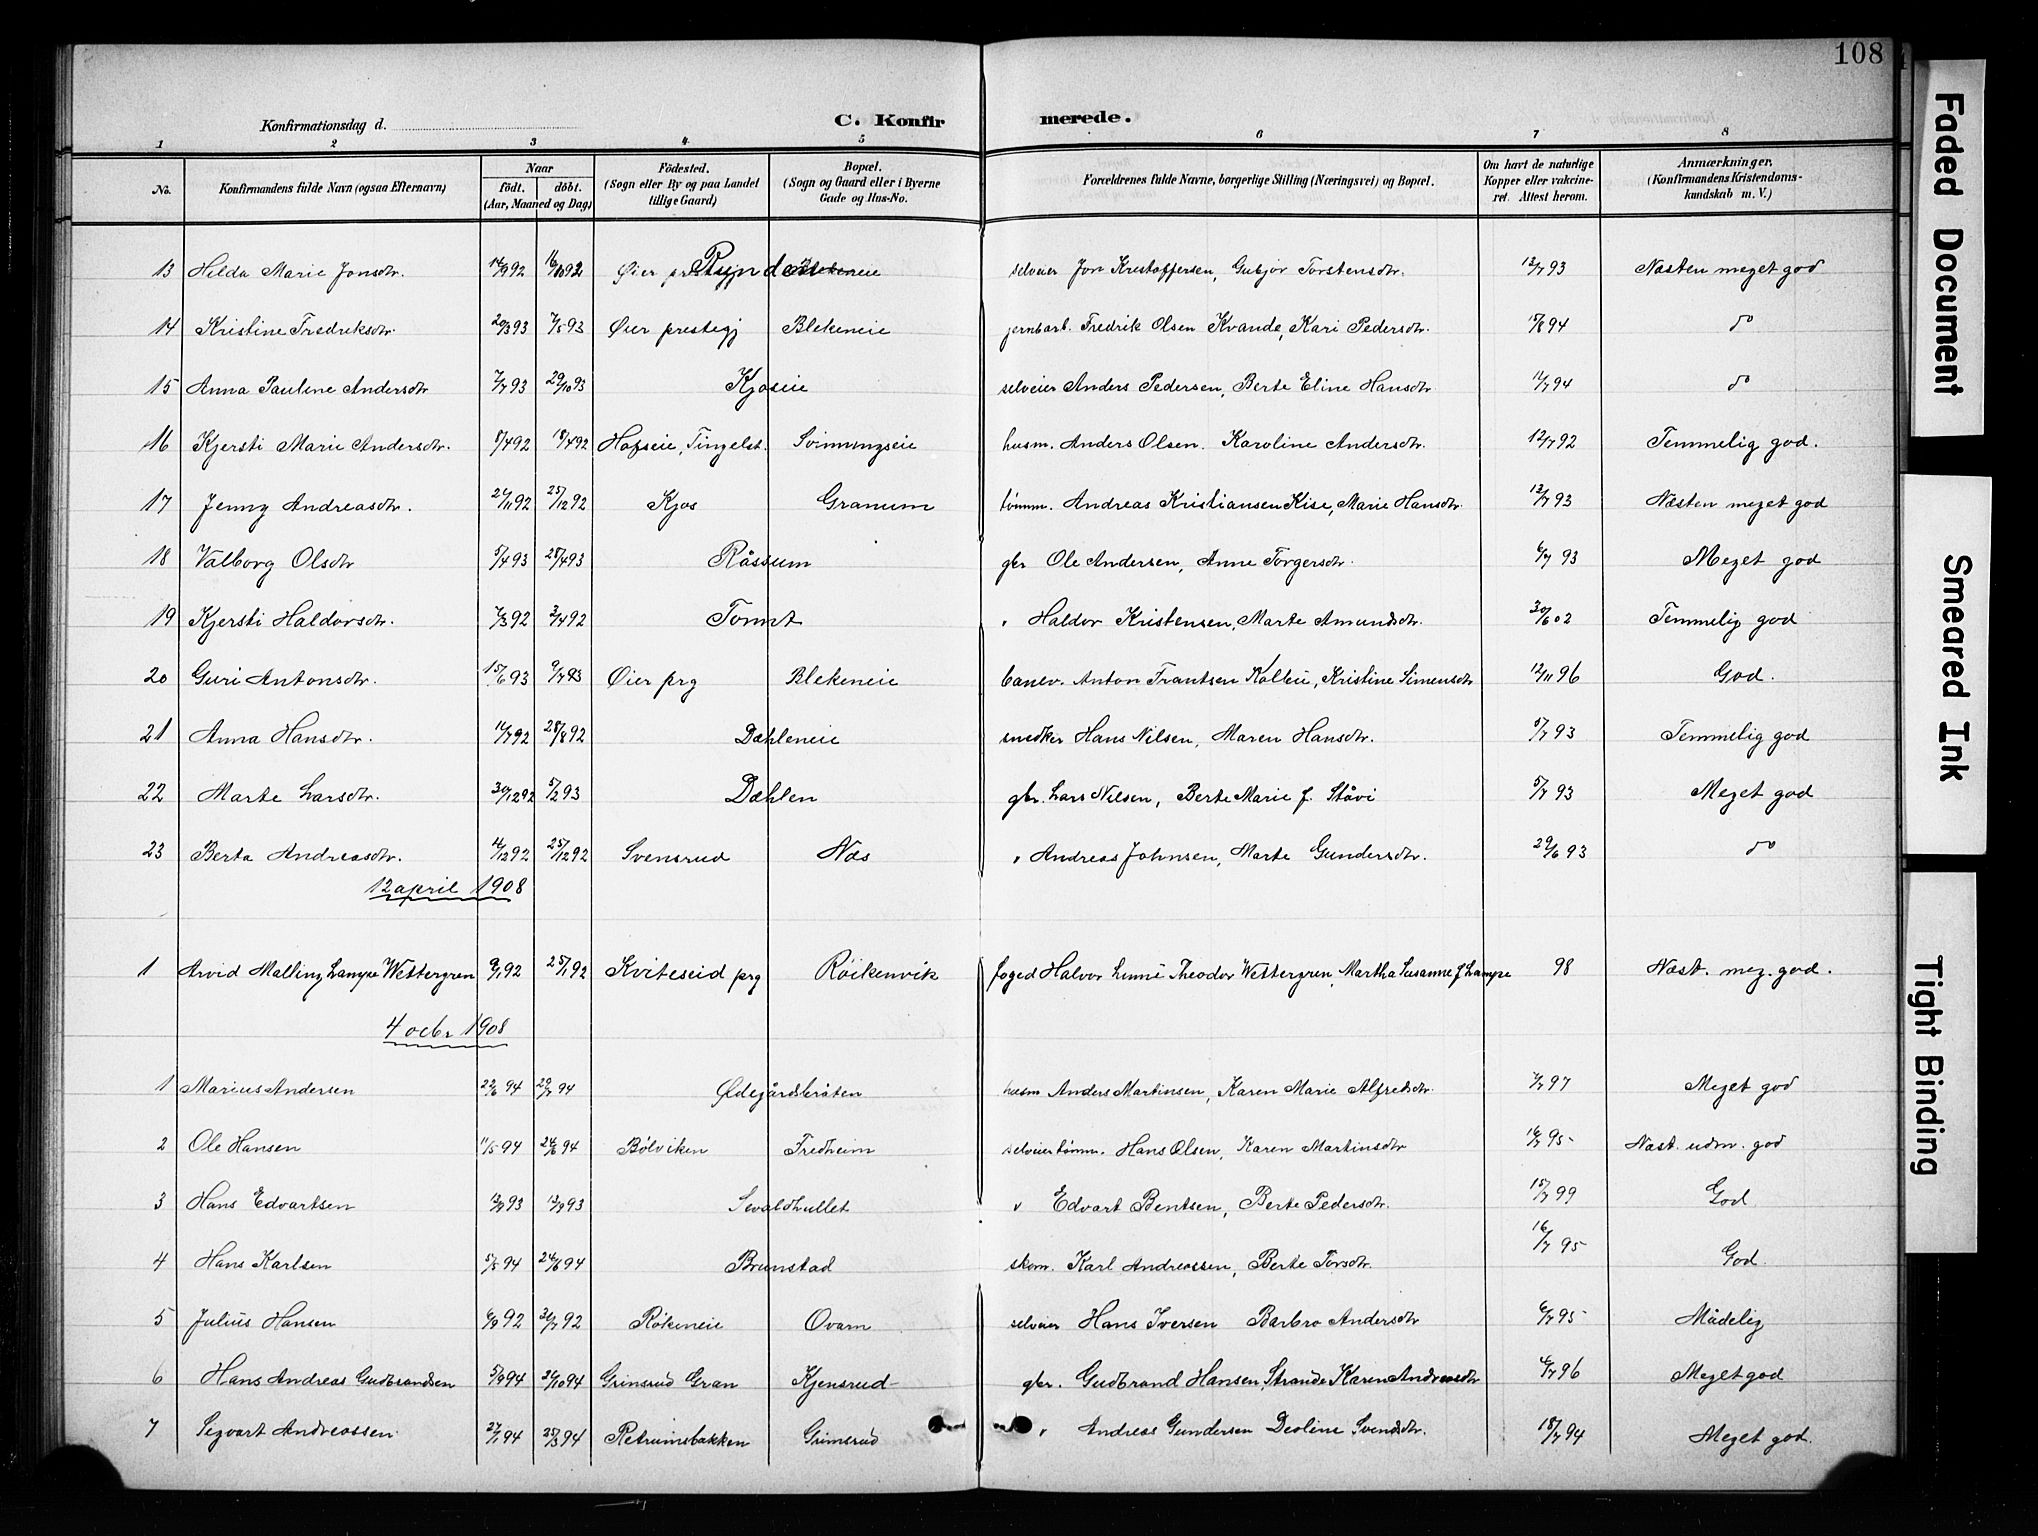 108
Konfirmationsdag d.
C. Konfirmerede.
1 2 3 4 5 6 7 8
No. Konfirmandens fulde Navn (ogsaa Efternavn) Naar født. døbt. (Aar, Maaned og Dag) Fødested. (Sogn eller By og paa Landet tillige Gaard) Bopæl. (Sogn og Gaard eller i Byerne Gade og Hus-No. Forældrenes fulde Navne, borgerlige Stilling (Næringsvei) og Bopæl. Om havt de naturlige Kopper eller vakcineret. Attest herom. Anmærkninger. (Konfirmandens Kristendomskundskab m. V.)
13 Hilda Marie Jonsdtr. Øier selveier Jon Kristoffersen, Gubjør Torstensdtr. 12/7 93 Næsten meget god
14 Kristine Fredriksdtr. 20/3 93 7/5 93 Øier prestegj Blekeneie jernbarb. Fredrik Olsen Kvande, Kari Pedersdtr. 94 do
15 Anna Pauline Andersdtr 7/7 93 29/10 93 Kjoseie selveier Anders Pedersen, Berte Eline Hansdtr 11/7 94 do
16 Kjersti Marie Andersdtr. 8/4 92 18/4 92 Hofseie, Tingelst. Svinningseie husm. Anders Olsen. Karoline Andersdtr. 12/7 92 Temmelig god.
17 Jenny Andreasdtr. 11 92 25/12 92 Kjos Granum tømm. Andreas Kristiansen Kise, Marie Hansdtr. 12/7 93 Næsten meget god
18 Valborg Olsdtr 5/4 93 28/4 93 Råssum gbr Ole Andersen, Anne Torgersdtr. 6/7 93 Meget god
19 Kjersti Haldorsdtr. 7/3 92 3/4 92 Tømt " Haldor Kristensen, Marte Amundsdtr. 30/6 02 Temmelig god
20 Guri Antonsdtr. 15/6 93 9/7 93 Øier prg Blekeneie banev. Anton Frantsen Kolleie, Kristine Simensdtr 12/11 96 God.
21 Anna Hansdtr. 7 92 28/8 92 Dæhleneie snedker Hans Nilsen, Maren Hansdtr. 5/7 93 Temmelig god
22 Marte Larsdtr. 30/12 92 5/2 93 Dæhlen gbr. Lars Nilsen, Berte Marie f. Ståvi 5/7 93 Meget god
23 Berta Andreasdtr. 12 92 25/12 92 Svensrud Næs " Andreas Johnsen, Marte Gundersdtr. 29/6 93 do
12 april 1908
1 Arvid Malling Lampe Wettergren 9/1 92 25/1 92 Kviteseid prg Røikenvik foged Halvor Linné Theodor Wettergren, Martha Susanne f Lampe 98 Næst. meg. god.
4 octbr 1908
1 Marius Andersen 22/6 94 29/7 94 Ødegårdsbråten husm Anders Martinsen, Karen Marie Alfredsdtr. 97 Meget god
2 Ole Hansen 11/5 94 24/6 94 Bølviken Fredheim selveier tømm. Hans Olsen, Karen Martinsdtr 16/7 95 Næst. udm. god
3 Hans Edvartsen 93 93 Sevaldhullet " Edvart Bentsen, Berte Pedersdtr. 15/7 99 God.
4 Hans Karlsen 5/5 94 24/6 94 Brunstad skom. Karl Andreassen, Berte Torsdtr. 16/7 95 God.
5 Julius Hansen 92 92 Røkeneie Ovarn selveier Hans Iversen Barbro Andersdtr 6/7 95 Mådelig
6 Hans Andreas Gudbrandsen 5/9 94 10 94 Grinsrud Gran Kjensrud gbr. Gudbrand Hansen, Strande Karen Andreasdtr 96 Meget god
7 Sigvart Andreassen 27/1 94 25/3 94 Retrumsbakken Grimsrud " Andreas Gundersen Deoline Svendsdtr. 18/7 94 Meget god.
Faded Document
Smeared Ink
Tight Binding